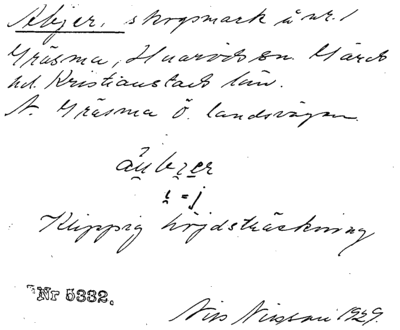 Åbjer, skogsmark å nr. 1
Gräsma, Huaröds sn. Gärds
hd. Kristianstads län.
N. Gräsma Ö. landsvägen.
Klippig höjdsträckning
Nr 5332.
Nils Nilsson 1929.